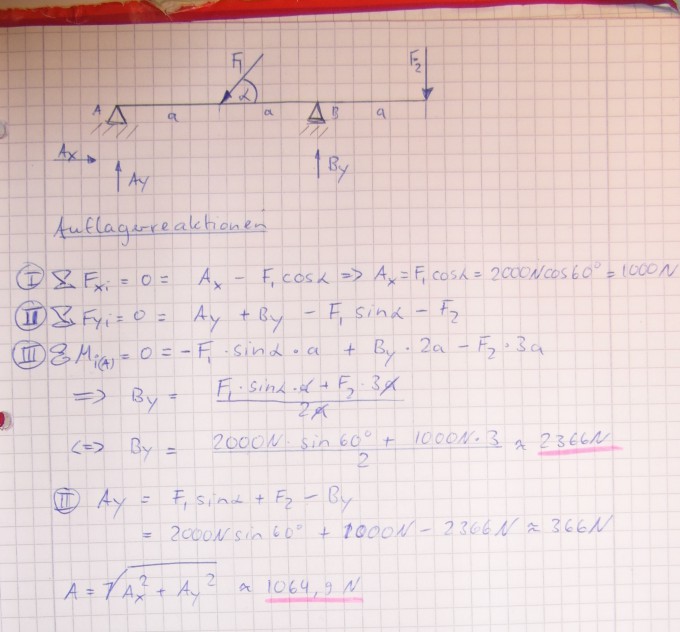 F₁
F₂
A
α
B
a
a
a
Ax
Ay
By
Auflagerreaktionen
Ⓘ ∑ Fxi = 0 = Ax - F₁ cosα => Ax = F₁ cosα = 2000N cos60° = 1000N
Ⓘ︎Ⓘ ∑ Fyi = 0 = Ay + By - F₁ sinα - F₂
(III) ∑ Mi(A) = 0 = -F₁ · sinα · a + By · 2a - F₂ · 3a
=> By = (F₁ · sinα · a + F₂ · 3a) / 2a
<=> By = (2000N · sin 60° + 1000N · 3) / 2 ≈ 2366N
(II) Ay = F₁ sinα + F₂ - By
= 2000N sin 60° + 1000N - 2366N ≈ 366N
A = √(Ax² + Ay²) ≈ 1064,9 N